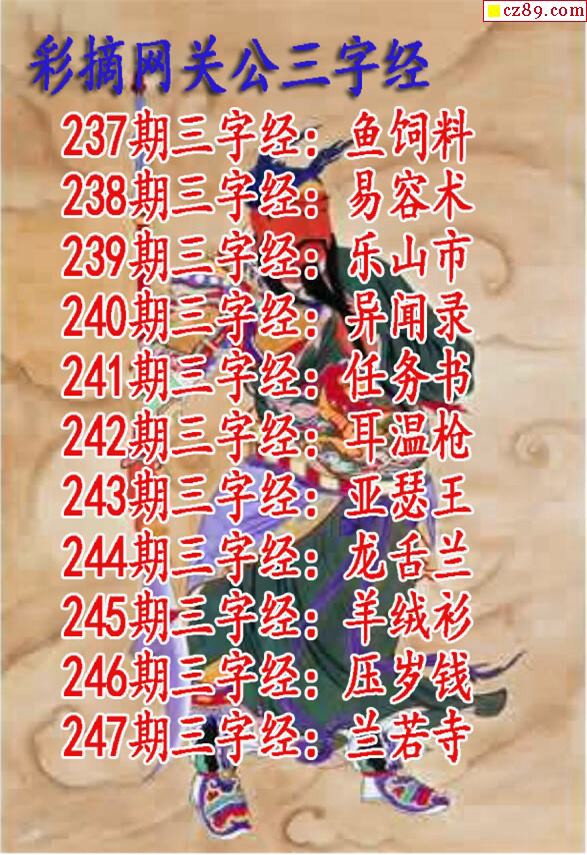 cz89.com
彩摘网关公三字经
237期三字经：鱼饲料
238期三字经：易容术
239期三字经：乐山市
240期三字经：异闻录
241期三字经：任务书
242期三字经：耳温枪
243期三字经：亚瑟王
244期三字经：龙舌兰
245期三字经：羊绒衫
246期三字经：压岁钱
247期三字经：兰若寺